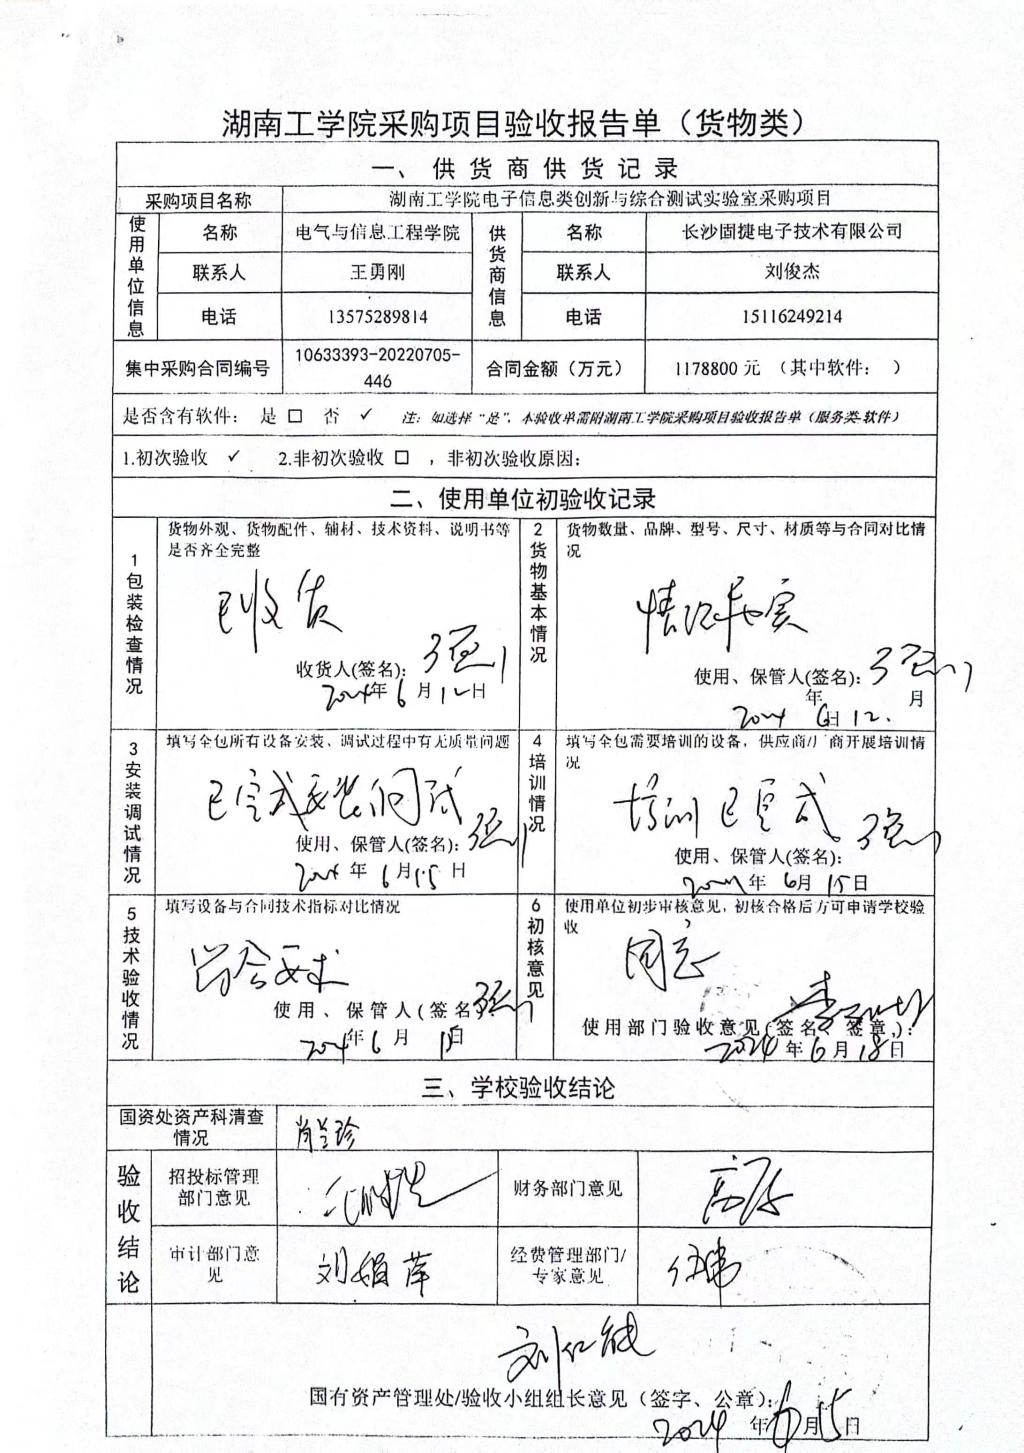 湖南工学院采购项目验收报告单（货物类）
一、供货商供货记录
采购项目名称 湖南工学院电子信息类创新与综合测试实验室采购项目
使用单位信息 名称 电气与信息工程学院 供货商信息 名称 长沙固捷电子技术有限公司
联系人 王勇刚 联系人 刘俊杰
电话 13575289814 电话 15116249214
集中采购合同编号 10633393-20220705-446 合同金额（万元） 1178800 元 （其中软件： ）
是否含有软件： 是 □ 否 ✓ 注：如选择“是”，本验收单需附湖南工学院采购项目验收报告单（服务类-软件）
1.初次验收 ✓ 2.非初次验收 □ ，非初次验收原因：
二、使用单位初验收记录
1包装检查情况
货物外观、货物配件、辅材、技术资料、说明书等
是否齐全完整
已收货
收货人(签名):
2024年6月12日
2货物基本情况
货物数量、品牌、型号、尺寸、材质等与合同对比情
况
情况属实
使用、保管人(签名):
年 月
2024 6日 12.
3安装调试情况
填写全包所有设备安装、调试过程中有无质量问题
已完成安装调试
使用、保管人(签名):
2024年6月15日
4培训情况
填写全包需要培训的设备，供应商/厂商开展培训情
况
培训已完成
使用、保管人(签名):
2024年6月15日
5技术验收情况
填写设备与合同技术指标对比情况
符合要求
使用、保管人(签名
2024年6月18日
6初核意见
使用单位初步审核意见，初核合格后方可申请学校验
收
同意
使用部门验收意见(签名、签章):
2024年6月18日
三、学校验收结论
国资处资产科清查
情况
肖兰珍
验收结论
招投标管理
部门意见
财务部门意见
审计部门意
见
刘娟萍
经费管理部门/
专家意见
伍伟
刘仁能
国有资产管理处/验收小组组长意见（签字、公章）:
2024年6月15日